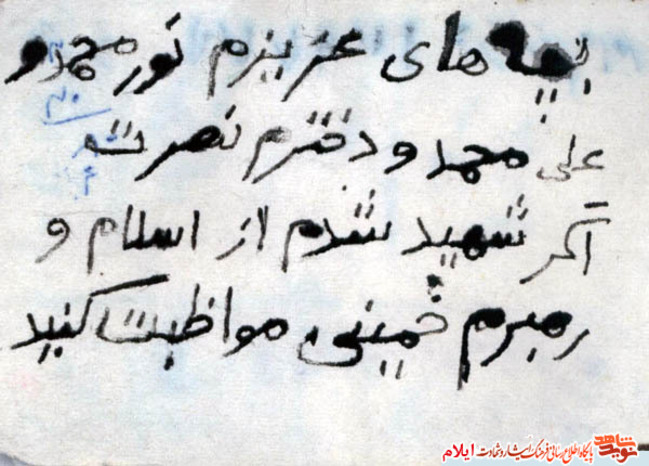 بچه های عزیزم نورمحمد و
علی محمد و دخترم نصرت
اگر شهید شدم از اسلام و
رهبرم خمینی مواظبت کنید
نوید شاهد پایگاه اطلاع رسانی فرهنگ ایثار و شهادت ایلام